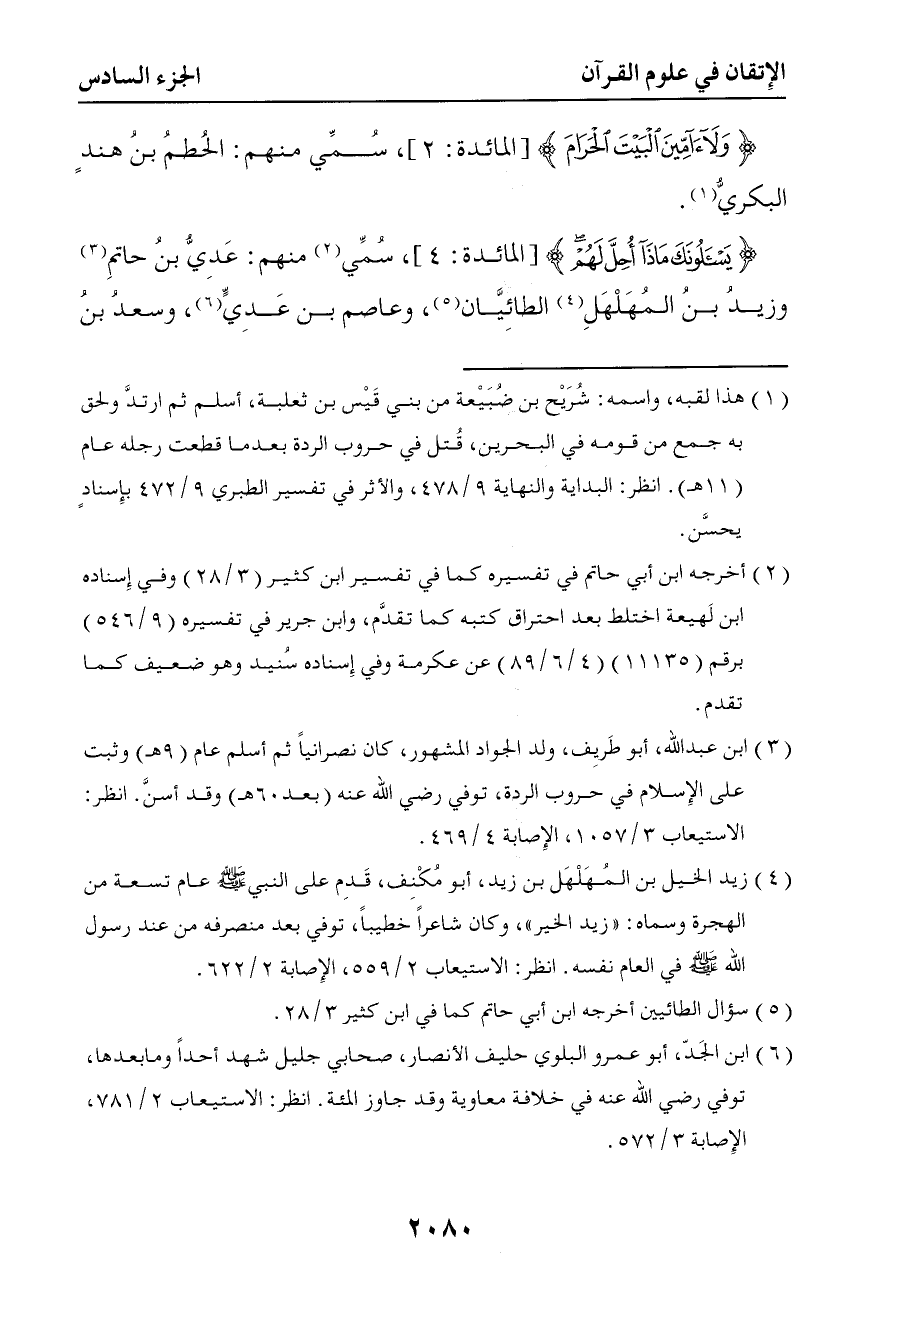 الإتقان في علوم القرآن
الجزء السادس
﴿ وَلَآ ءَآمِّينَ ٱلْبَيْتَ ٱلْحَرَامَ ﴾ [ المائدة : ٢ ]، سُمِّي منهم : الحُطمُ بنُ هندٍ
البكريُّ(١) .
﴿ يَسْـَٔلُونَكَ مَاذَآ أُحِلَّ لَهُمْۖ ﴾ [ المائدة : ٤ ]، سُمِّي(٢) منهم : عَديُّ بنُ حاتمٍ(٣)
وزيدُ بنُ المُهَلْهَلِ(٤) الطائيَّان(٥)، وعاصم بن عَديٍّ(٦)، وسعدُ بنُ
( ١ ) هذا لقبه، واسمه : شُرَيْح بن ضُبَيْعة من بني قَيْس بن ثعلبة، أسلم ثم ارتدَّ ولحق
به جمع من قومه في البحرين، قُتل في حروب الردة بعدما قطعت رجله عام
( ١١هـ). انظر : البداية والنهاية ٩ / ٤٧٨، والأثر في تفسير الطبري ٩ / ٤٧٢ بإسنادٍ
يحسَّن .
( ٢ ) أخرجه ابن أبي حاتم في تفسيره كما في تفسير ابن كثير ( ٣ / ٢٨ ) وفي إسناده
ابن لَهيعة اختلط بعد احتراق كتبه كما تقدَّم، وابن جرير في تفسيره ( ٩ / ٥٤٦ )
برقم ( ١١١٣٥ ) ( ٤ / ٦ / ٨٩ ) عن عكرمة وفي إسناده سُنُيد وهو ضعيف كما
تقدم .
( ٣ ) ابن عبدالله، أبو طَريف، ولد الجواد المشهور، كان نصرانياً ثم أسلم عام ( ٩هـ) وثبت
على الإسلام في حروب الردة، توفي رضي الله عنه ( بعد ٦٠هـ) وقد أسنَّ . انظر :
الاستيعاب ٣ / ١٠٥٧، الإصابة ٤ / ٤٦٩ .
( ٤ ) زيد الخيل بن المُهَلْهَل بن زيد، أبو مُكْنِف، قَدِم على النبي ﷺ عام تسعة من
الهجرة وسماه : « زيد الخير »، وكان شاعراً خطيباً، توفي بعد منصرفه من عند رسول
الله ﷺ في العام نفسه . انظر : الاستيعاب ٢ / ٥٥٩، الإصابة ٢ / ٦٢٢ .
( ٥ ) سؤال الطائيين أخرجه ابن أبي حاتم كما في ابن كثير ٣ / ٢٨ .
( ٦ ) ابن الجَدّ، أبو عمرو البلوي حليف الأنصار، صحابي جليل شهد أحداً ومابعدها،
توفي رضي الله عنه في خلافة معاوية وقد جاوز المئة . انظر : الاستيعاب ٢ / ٧٨١،
الإصابة ٣ / ٥٧٢ .
٢٠٨٠